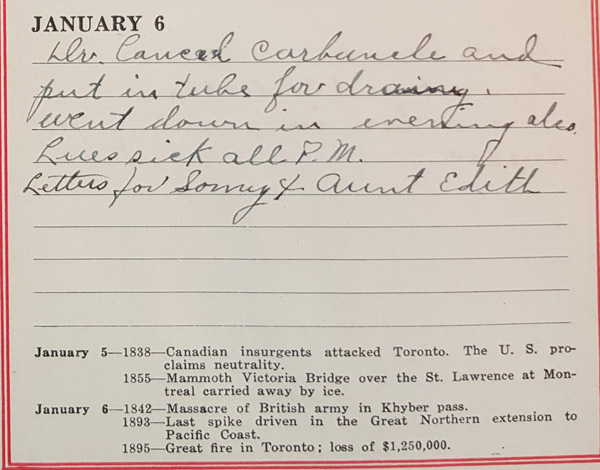 JANUARY 6
Dr. Lanced Carbuncle and
put in tube for draining.
went down in evening also.
sick all P.M.
Letters for Sonny & Aunt Edith
January 5—1838—Canadian insurgents attacked Toronto. The U. S. pro-
claims neutrality.
1855—Mammoth Victoria Bridge over the St. Lawrence at Mon-
treal carried away by ice.
January 6—1842—Massacre of British army in Khyber pass.
1893—Last spike driven in the Great Northern extension to
Pacific Coast.
1895—Great fire in Toronto; loss of $1,250,000.